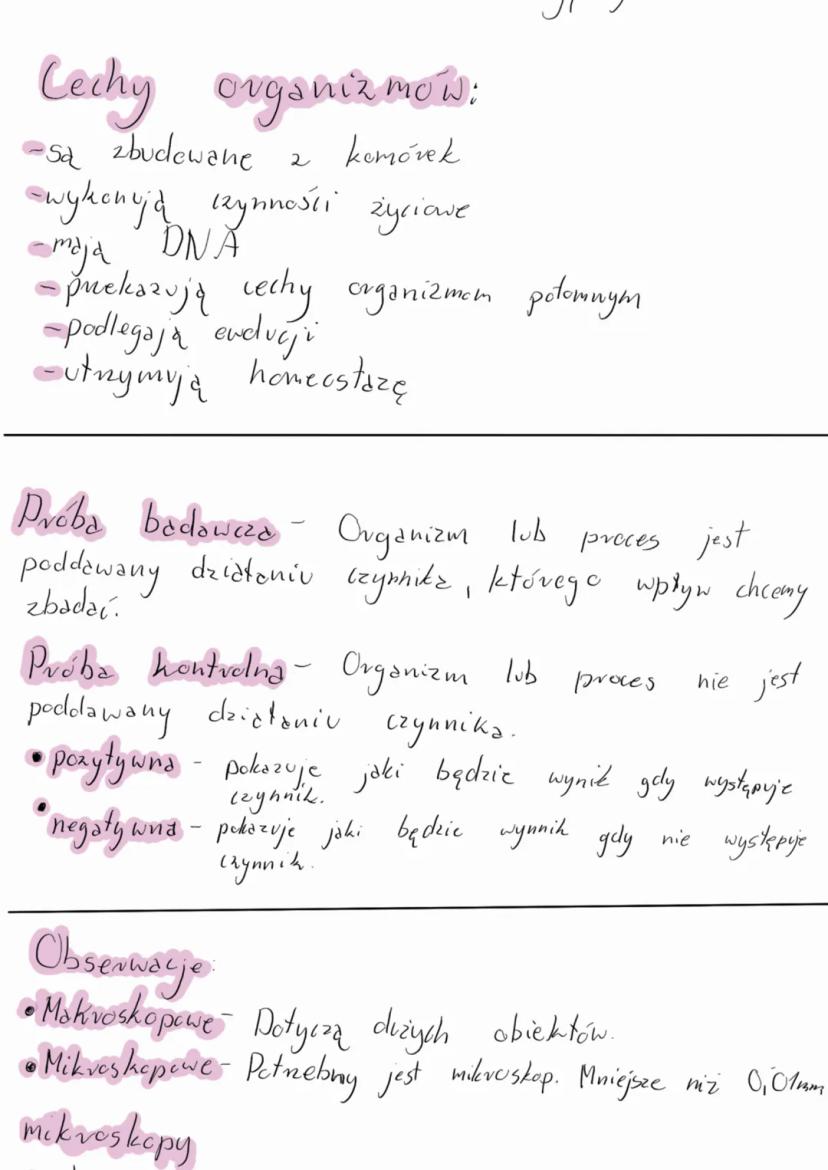 Cechy organizmów:
-są zbudowane z komórek
-wykonują czynności życiowe
-mają DNA
-przekazują cechy organizmom potomnym
-podlegają ewolucji
-utrzymują homeostazę
Próba badawcza - Organizm lub proces jest
poddawany działaniu czynnika, którego wpływ chcemy
zbadać.
Próba kontrolna - Organizm lub proces nie jest
poddawany działaniu czynnika.
• pozytywna - pokazuje jaki będzie wynik gdy występuje
czynnik.
• negatywna - pokazuje jaki będzie wynnik gdy nie występuje
czynnik.
Obserwacje:
• Makroskopowe - Dotyczą dużych obiektów.
• Mikroskopowe - Potrzebny jest mikroskop. Mniejsze niż 0,01mm
mikroskopy